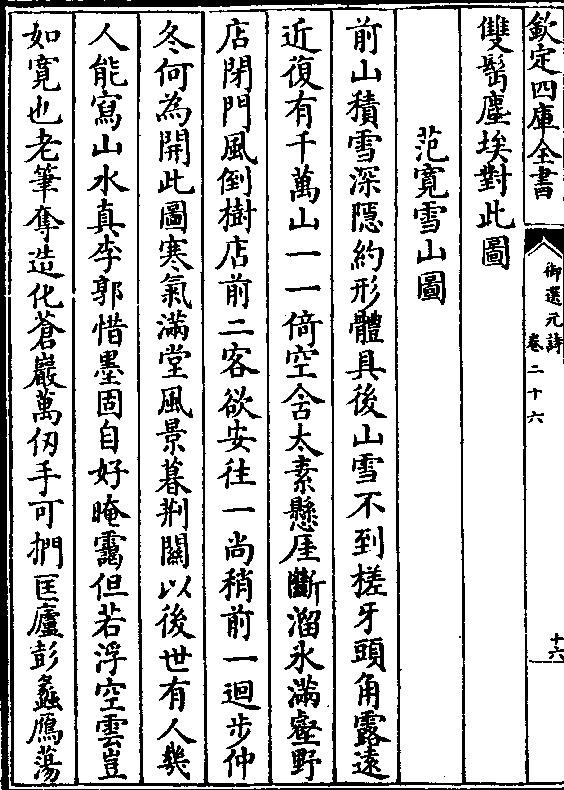 欽定四庫全書
御選元詩
卷二十六
十六
雙髩塵埃對此圖
范寛雪山圖
前山積雪深隠約形體具後山雪不到槎牙頭角露遠
近復有千萬山一一倚空含太素懸厓斷溜氷滿壑野
店閉門風倒樹店前二客欲安往一尚稍前一迴步仲
冬何為開此圖寒氣滿堂風景暮荆關以後世有人幾
人能寫山水真李郭惜墨固自好晻靄但若浮空雲豈
如寛也老筆奪造化蒼巖萬仞手可捫匡廬彭蠡鴈蕩